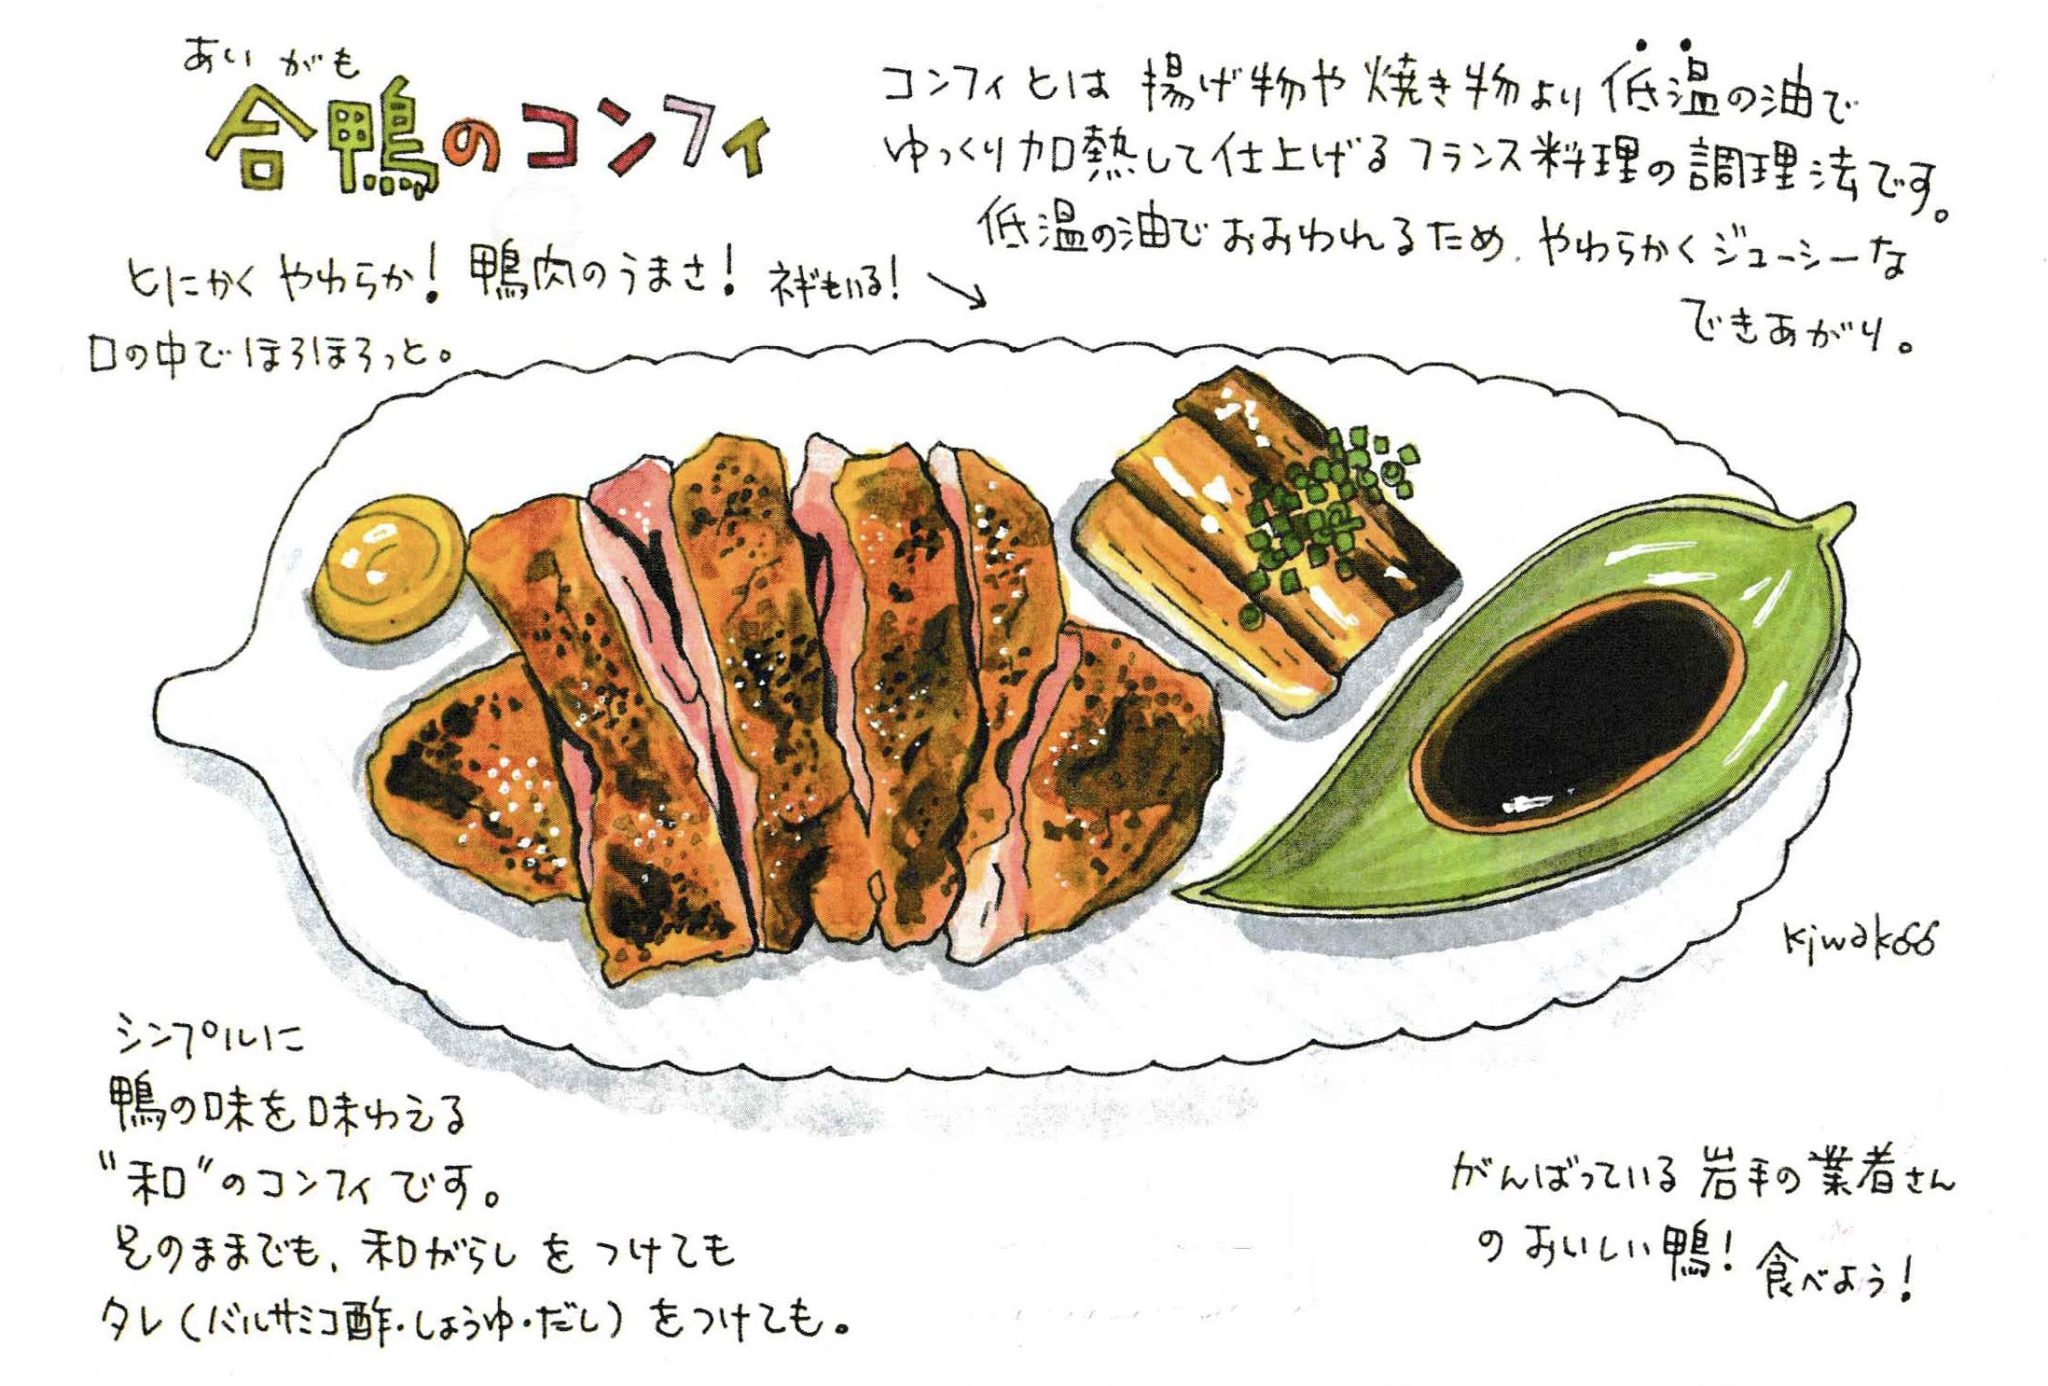 あいがも
合鴨のコンフィ
コンフィとは 揚げ物や焼き物より低温の油で
ゆっくり加熱して仕上げるフランス料理の調理法です。
低温の油でおおわれるため、やわらかくジューシーな
できあがり。
とにかくやわらか! 鴨肉のうまさ! ネギもいる!
口の中でほろほろっと。
kiwako66
シンプルに
鴨の味を味わえる
"和"のコンフィです。
そのままでも、和がらしをつけても
タレ(バルサミコ酢・しょうゆ・だし)をつけても。
がんばっている岩手の業者さん
のおいしい鴨! 食べよう!